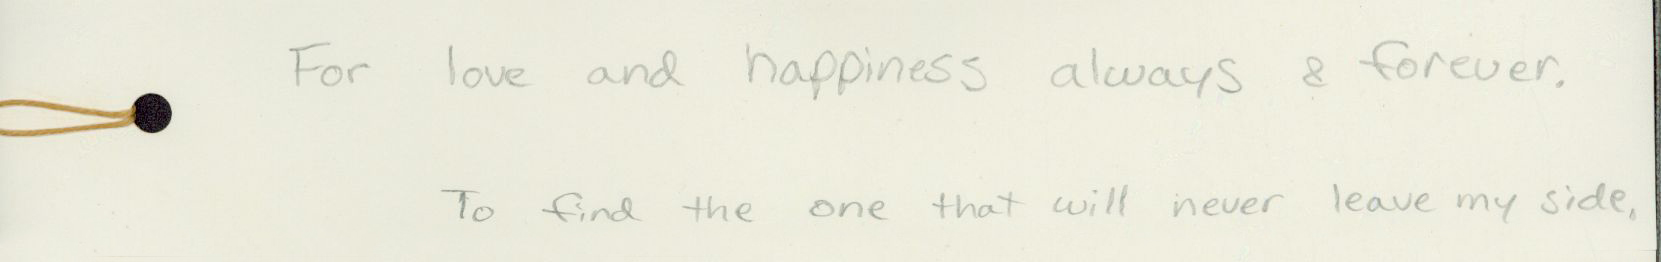 For love and happiness always & forever.
To find the one that will never leave my side,